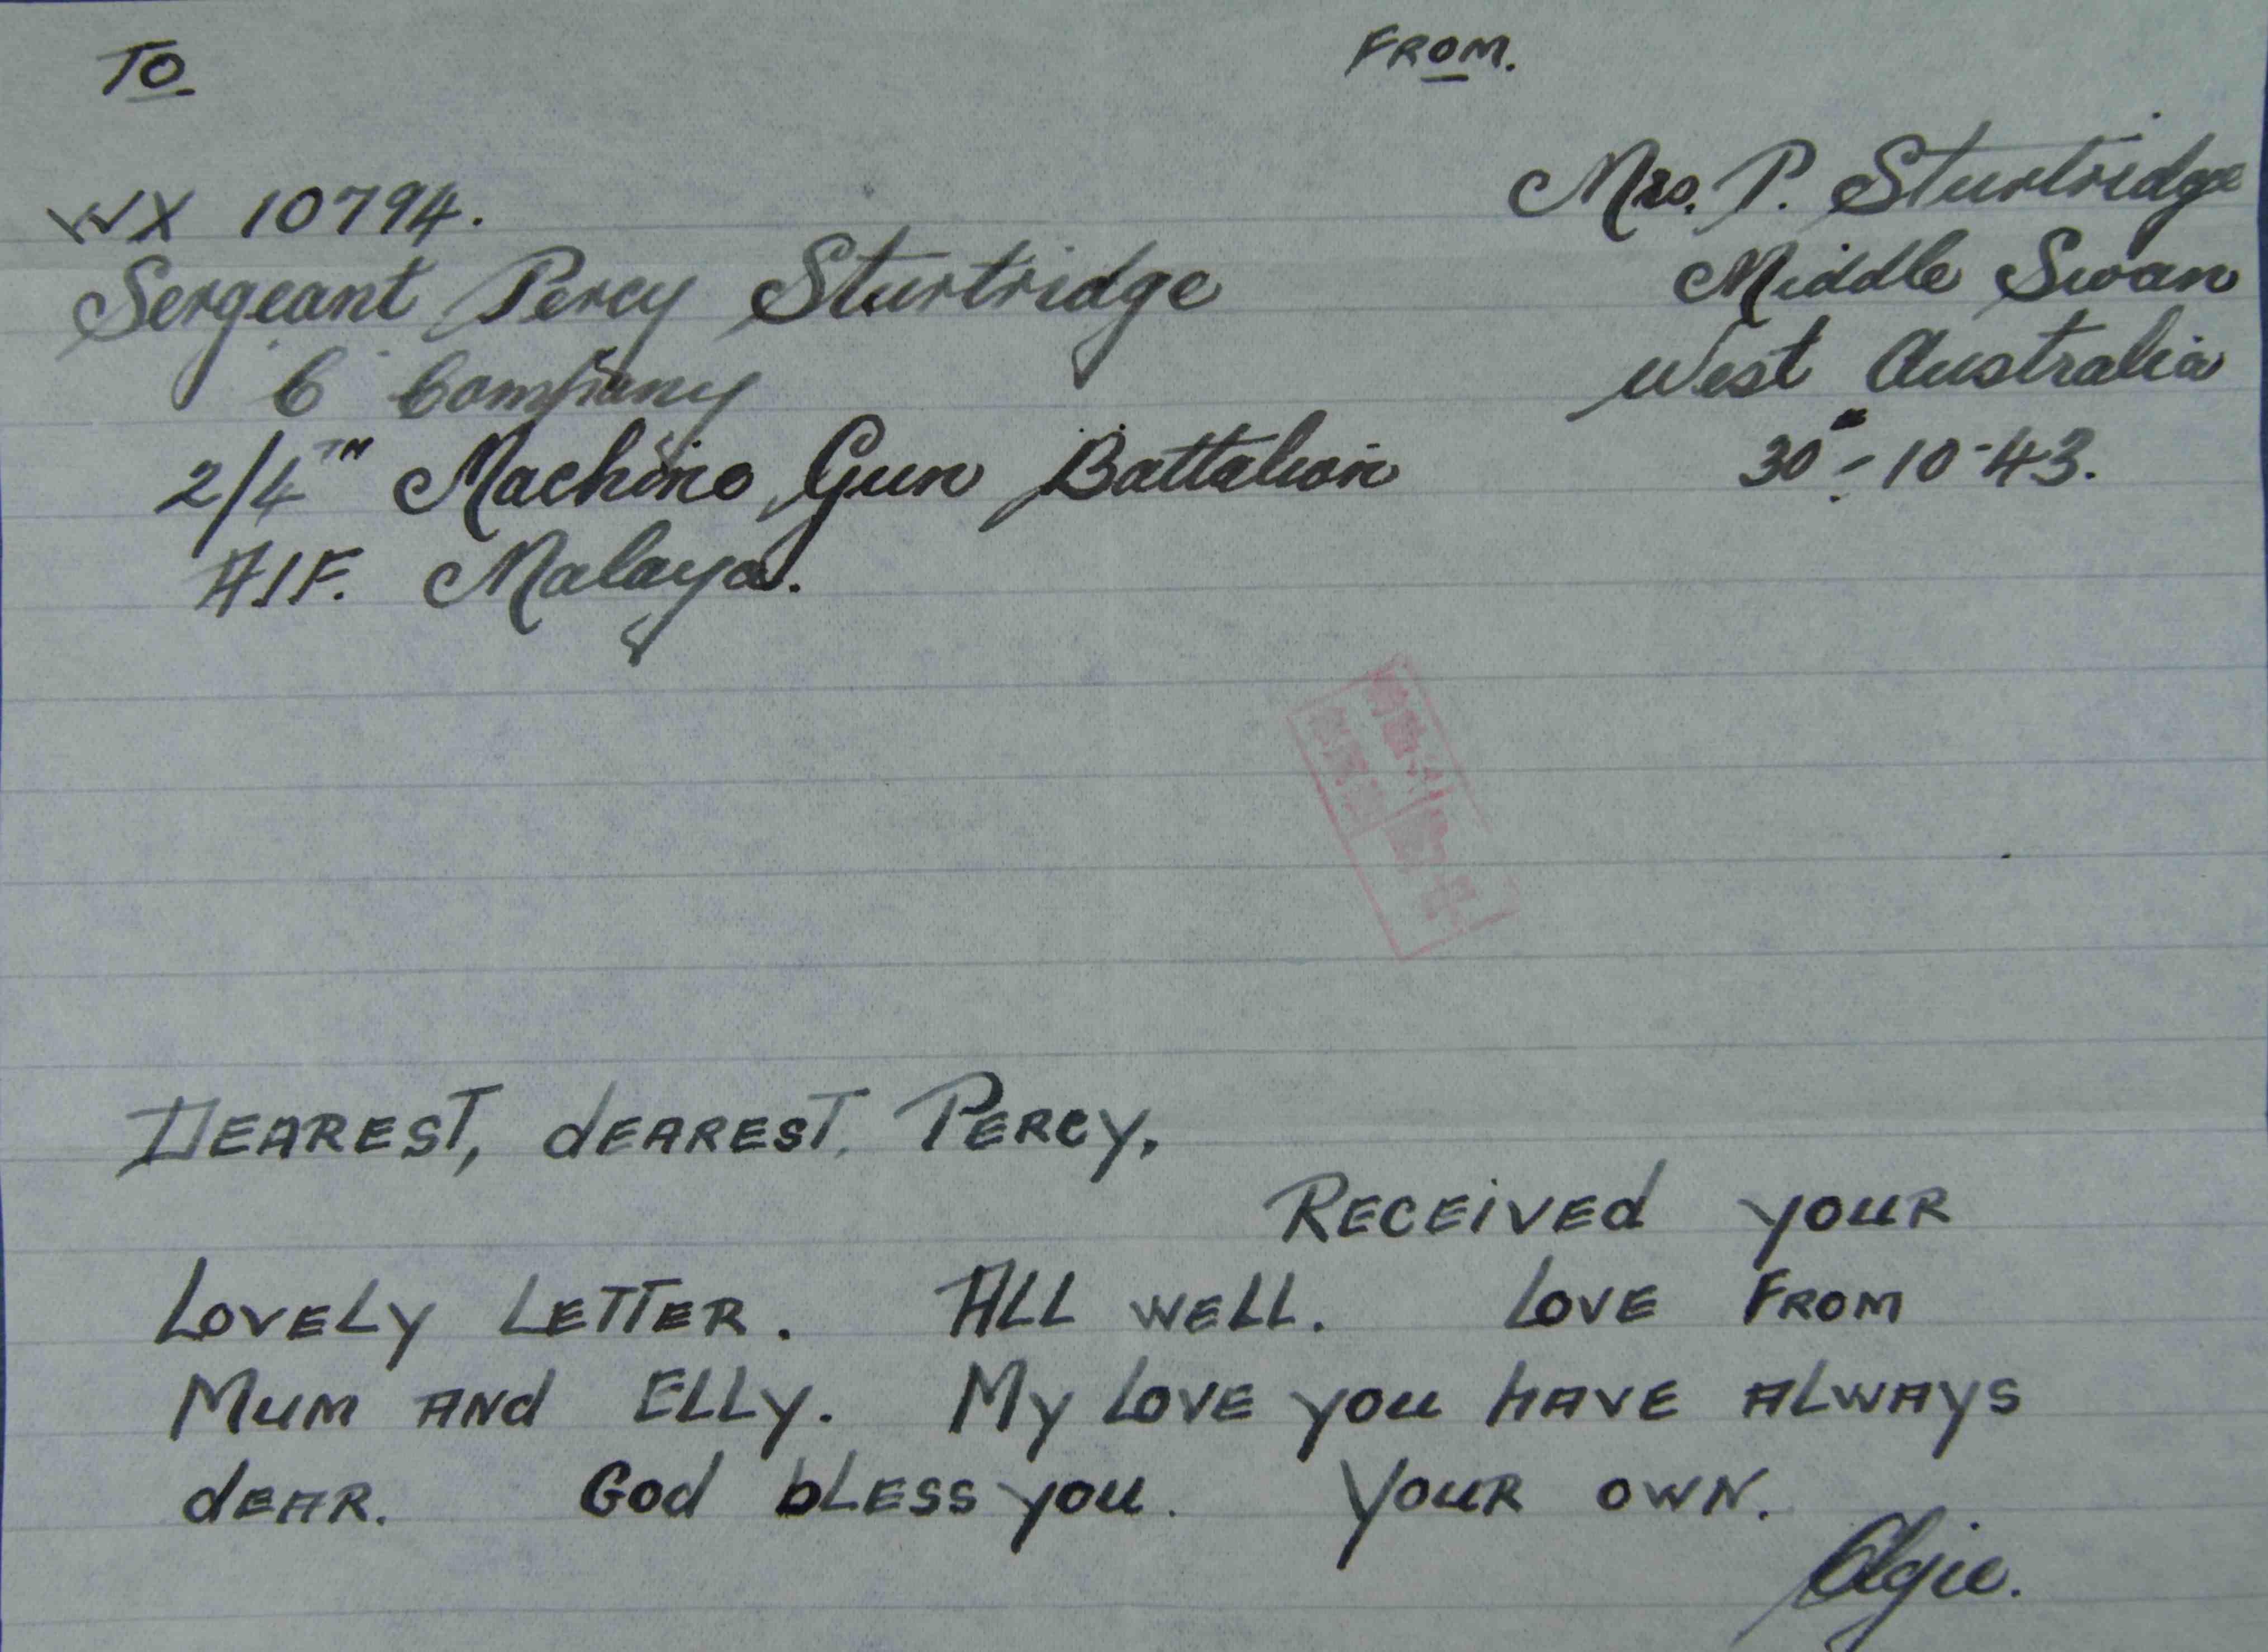 TO
FROM.
WX 10794.
Sergeant Percy Sturtridge
C Company
2/4TH Machine Gun Battalion
AIF. Malaya.
Mrs. P. Sturtridge
Middle Swan
West Australia
30th-10-43.
DEAREST, dEAREST, PERCY,
RECEiVEd YOUR
LOVELY LETTER. ALL WELL. LOVE FROM
MUM ANd ELLY. MY LOVE YOU HAVE ALWAYS
dEAR. God bLESS YOU. YOUR OWN.
Olgie.